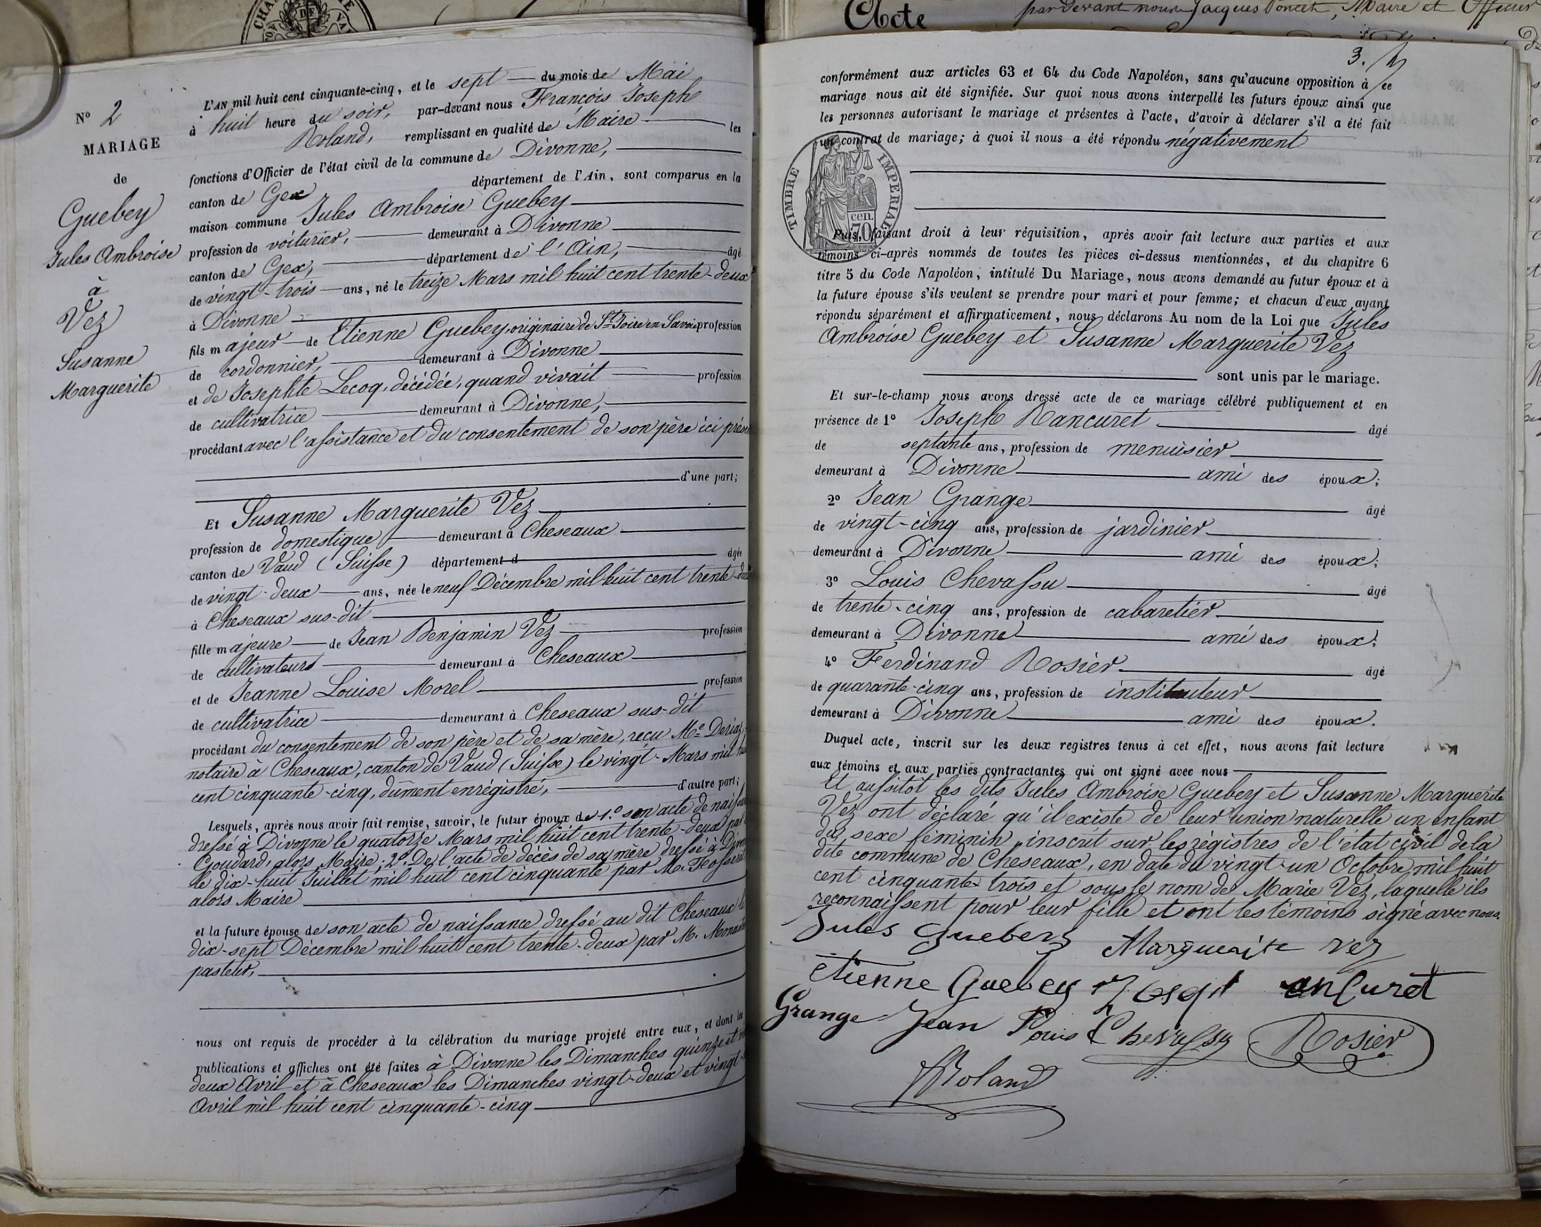 Acte
par devant nous Jacques Poncet, Maire et Officier
N° 2
MARIAGE
de
Guebey
Jules Ambroise
à
Vez
Susanne
Marguerite
L'AN mil huit cent cinquante-cinq, et le sept du mois de Mai
à huit heure du soir, par-devant nous François Joseph
Roland, remplissant en qualité de Maire les
fonctions d'Officier de l'état civil de la commune de Divonne,
canton de Gex département de l'Ain, sont comparus en la
maison commune Jules Ambroise Guebey
profession de voiturier, demeurant à Divonne
canton de Gex, département de l'Ain, âgé
de vingt-trois ans, né le treize Mars mil huit cent trente-deux
à Divonne
fils majeur de Etienne Guebey, originaire de St Joire en Savoie profession
de cordonnier, demeurant à Divonne
et de Josephte Lecoq, décédée, quand vivait profession
de cultivatrice demeurant à Divonne,
procédant avec l'assistance et du consentement de son père ici
d'une part;
Et Susanne Marguerite Vez
profession de domestique demeurant à Cheseaux
canton de Vaud (Suisse) département d âgée
de vingt-deux ans, née le neuf Décembre mil huit cent trente
à Cheseaux sus-dit
fille majeure de Jean Benjamin Vez profession
de cultivateurs demeurant à Cheseaux
et de Jeanne Louise Morel profession
de cultivatrice demeurant à Cheseaux sus-dit
procédant du consentement de son père et de sa mère, reçu Me
notaire à Cheseaux, canton de Vaud (Suisse) le vingt Mars mil
cent cinquante-cinq, dument enregistré, d'autre part;
Lesquels, après nous avoir fait remise, savoir, le futur époux de 1° son acte de
dressé à Divonne le quatorze Mars mil huit cent trente-deux par
Goudard, alors Maire; 2° De l'acte de décès de sa mère dressé à
le dix-huit Juillet mil huit cent cinquante par M.
alors Maire
et la future épouse de son acte de naissance dressé au dit Cheseaux le
dix-sept Décembre mil huit cent trente-deux par M.
pasteur,
nous ont requis de procéder à la célébration du mariage projeté entre eux, et dont les
publications et affiches ont été faites à Divonne les Dimanches quinze et
deux Avril et à Cheseaux les Dimanches vingt-deux et vingt
Avril mil huit cent cinquante-cinq
3.
conformément aux articles 63 et 64 du Code Napoléon, sans qu'aucune opposition à ce
mariage nous ait été signifiée. Sur quoi nous avons interpellé les futurs époux ainsi que
les personnes autorisant le mariage et présentes à l'acte, d'avoir à déclarer s'il a été fait
un contrat de mariage; à quoi il nous a été répondu négativement
TIMBRE IMPERIAL
70 cen.
Puis, faisant droit à leur réquisition, après avoir fait lecture aux parties et aux
témoins ci-après nommés de toutes les pièces ci-dessus mentionnées, et du chapitre 6
titre 5 du Code Napoléon, intitulé Du Mariage, nous avons demandé au futur époux et à
la future épouse s'ils veulent se prendre pour mari et pour femme; et chacun d'eux ayant
répondu séparément et affirmativement, nous déclarons Au nom de la Loi que Jules
Ambroise Guebey et Susanne Marguerite Vez
sont unis par le mariage.
Et sur-le-champ nous avons dressé acte de ce mariage célébré publiquement et en
présence de 1° Joseph Rancuret âgé
de septante ans, profession de menuisier
demeurant à Divonne ami des époux;
2° Jean Grange âgé
de vingt-cinq ans, profession de jardinier
demeurant à Divonne ami des époux;
3° Louis Chevassu âgé
de trente-cinq ans, profession de cabaretier
demeurant à Divonne ami des époux;
4° Ferdinand Rosier âgé
de quarante-cinq ans, profession de instituteur
demeurant à Divonne ami des époux.
Duquel acte, inscrit sur les deux registres tenus à cet effet, nous avons fait lecture
aux témoins et aux parties contractantes qui ont signé avec nous
Et aussitôt les dits Jules Ambroise Guebey et Susanne Marguerite
Vez ont déclaré qu'il existe de leur union naturelle un enfant
du sexe féminin inscrit sur les régistres de l'état civil de la
dite commune de Cheseaux, en date du vingt-un Octobre mil huit
cent cinquante-trois et sous le nom de Marie Vez, laquelle ils
reconnaissent pour leur fille et ont les témoins signé avec nous.
Jules Guebey Marguerite Vez
Etienne Guebey Joseph Rancuret
Grange Jean Louis Chevassu Rosier
Roland